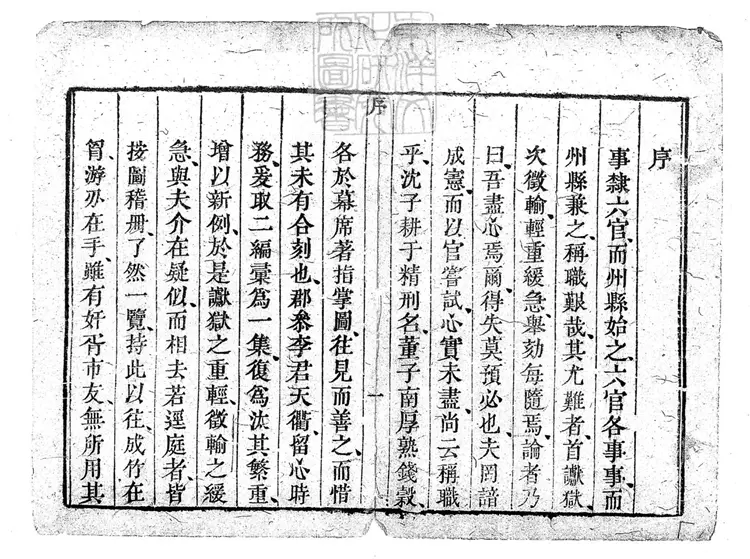 序
事隸六官、而州縣始之、六官各事事、而
州縣兼之、稱職艱哉、其尤難者、首讞獄、
次徵輸、輕重緩急、舉劾每隨焉、論者乃
曰、吾盡心焉爾、得失莫預必也、夫罔諳
成憲、而以官嘗試、心實未盡、尚云稱職
乎、沈子耕于精刑名、董子南厚熟錢穀、
序
一
各於幕席著指掌圖、往見而善之、而惜
其未有合刻也、郡叅李君天衢、留心時
務、爰取二編、彙為一集、復為汰其繁重、
增以新例、於是讞獄之重輕、徵輸之緩
急、與夫介在疑似、而相去若逕庭者、皆
按圖稽冊、了然一覽、持此以往、成竹在
胷、游刃在手、雖有奸胥市友、無所用其